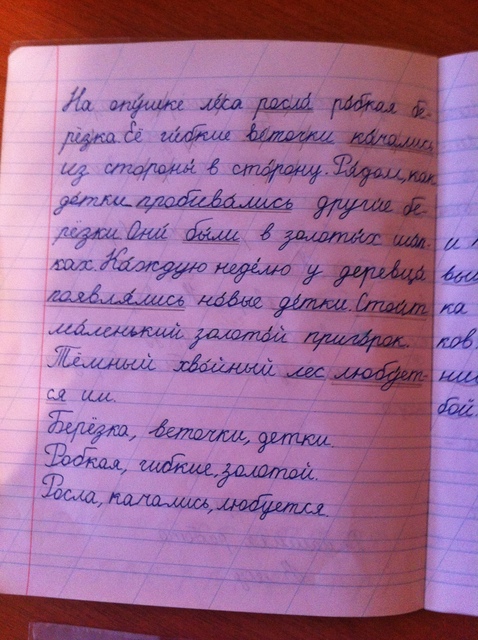 На опушке леса росла робкая бе-
рёзка. Её гибкие веточки качались
из стороны в сторону. Рядом, как
детки пробивались другие бе-
рёзки. Они были в золотых шап-
ках. Каждую неделю у деревца
появлялись новые детки. Стоит
маленький золотой пригорок.
Тёмный хвойный лес любует-
ся им.
Берёзка, веточки, детки.
Робкая, гибкие, золотой.
Росла, качались, любуется.
и
ка
ков.
бой.